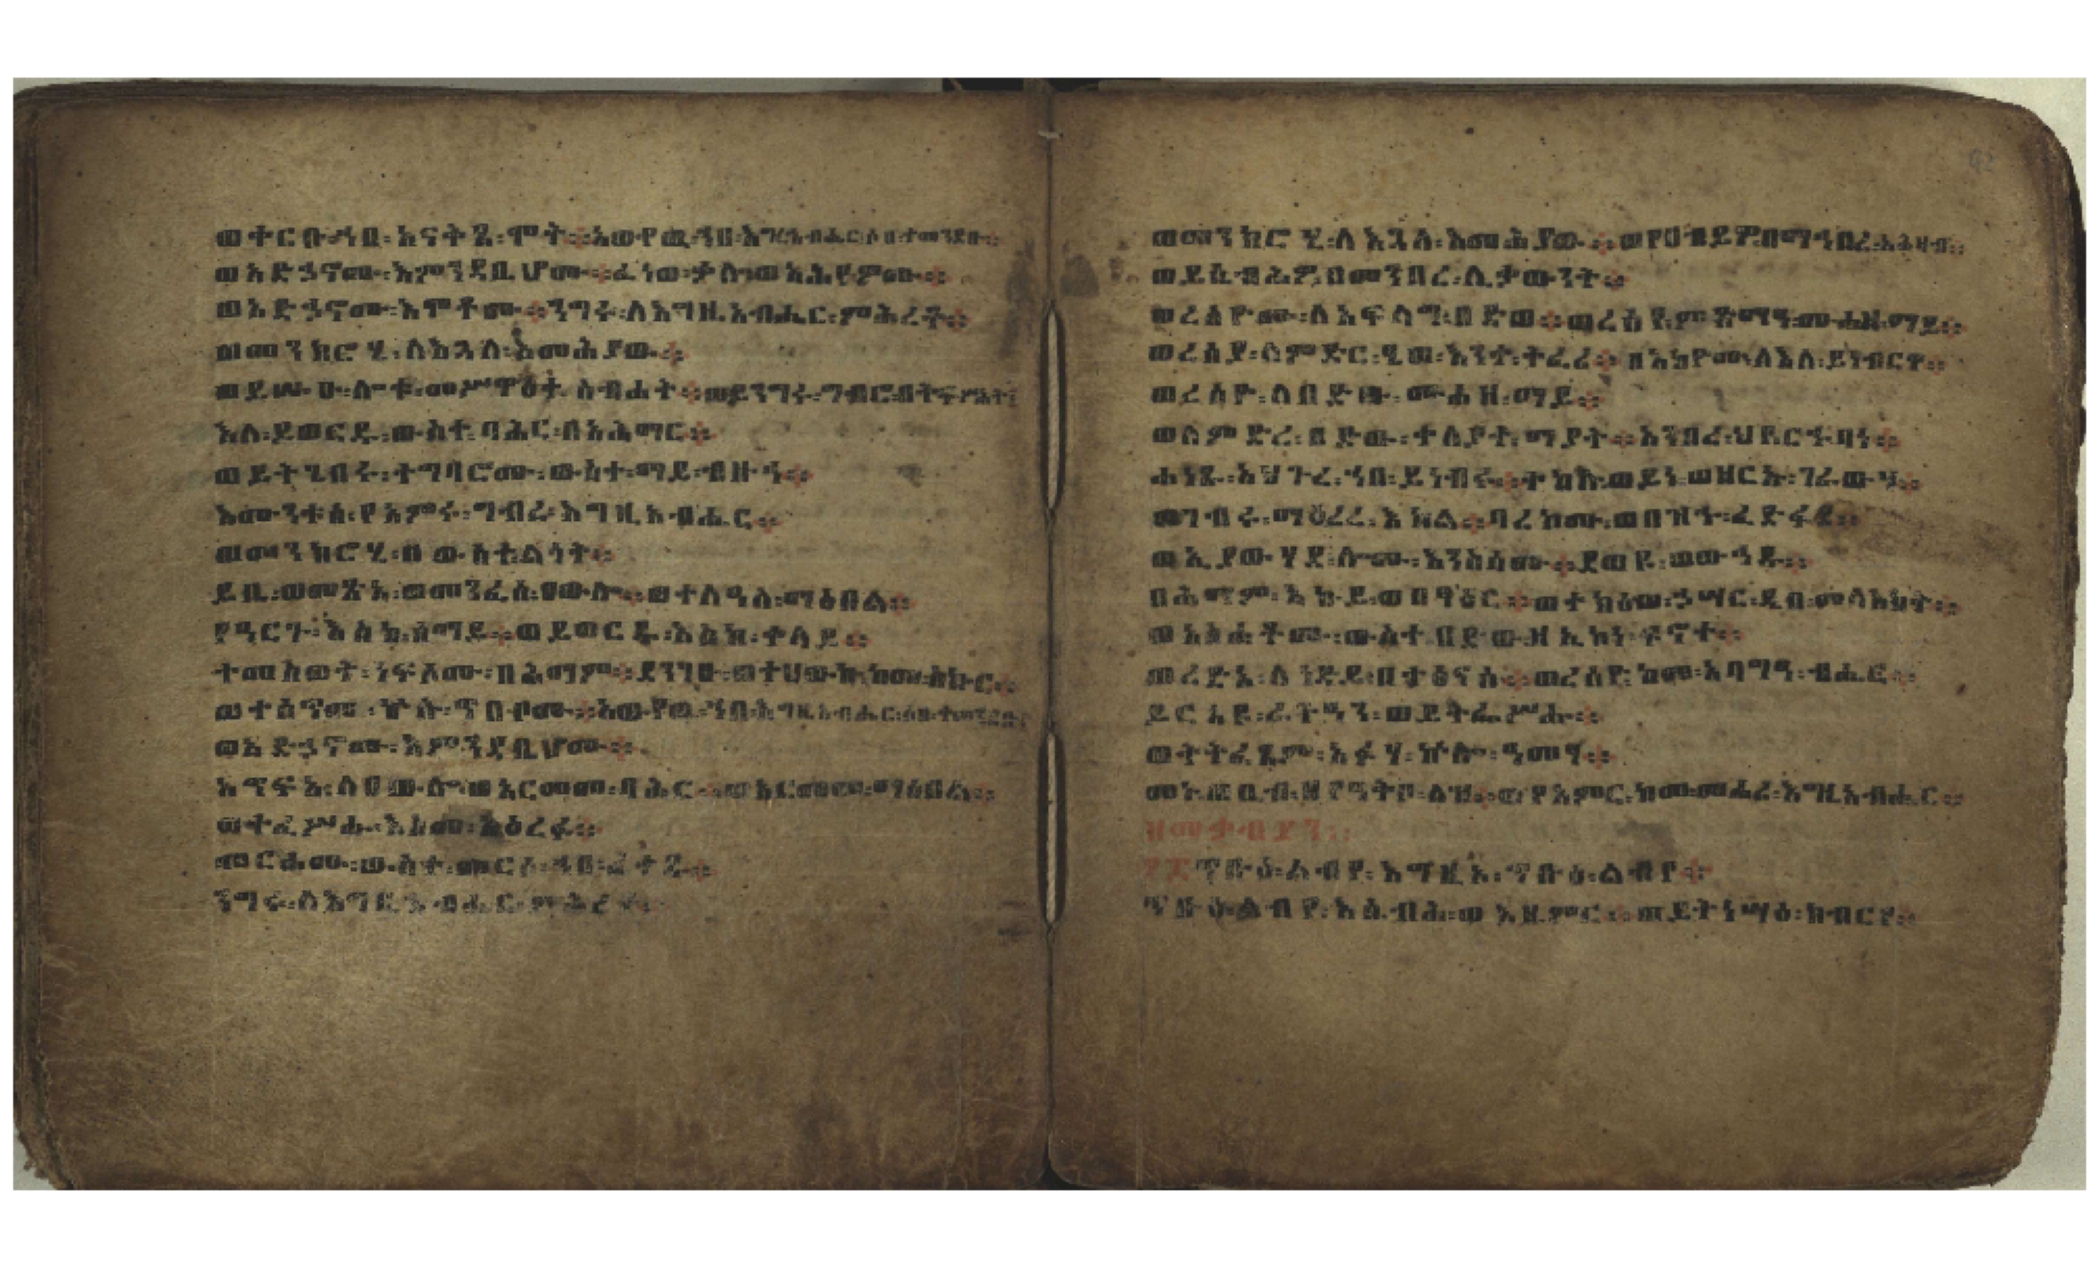 ወቀርቡ፡ኀበ፡አናቅጸ፡ሞት። አውየዉ፡ኀበ፡እግዚአብሔር፡ሶበ፡ተመንደቡ።
ወአድኃኖሙ፡እምንዳቤሆሙ። ፈነወ፡ቃሎ፡ወአሕየዎሙ።
ወአድኃኖሙ፡እሞቶሙ። ንግሩ፡ለእግዚአብሔር፡ምሕረቶ።
ወመንክሮሂ፡ለእጓለ፡እመሕያው።
ወይሡዑ፡ሎቱ፡መሥዋዕተ፡ስብሐት። ወይንግሩ፡ግብሮ፡በትፍሥሕት።
እለ፡ይወርዱ፡ውስተ፡ባሕር፡በአሕማር።
ወይትጌበሩ፡ተግባሮሙ፡ውስተ፡ማይ፡ብዙኅ።
እሙንቱሰ፡የአምሩ፡ግብረ፡እግዚአብሔር።
ወመንክሮሂ፡በውስተ፡ልጎት።
ይቤ፡ወመጽአ፡መንፈሰ፡ዐውሎ። ወተለዓለ፡ማዕበል።
የዓርጉ፡እስከ፡ሰማይ። ወይወርዱ፡እስከ፡ቀላይ።
ተመስወት፡ነፍሶሙ፡በሕማም። ደንገፁ፡ወተሀውኩ፡ከመ፡ስኩር።
ወተሰጥመ፡ኵሉ፡ጥበቦሙ። አውየዉ፡ኀበ፡እግዚአብሔር፡ሶበ፡ተመንደቡ።
ወአድኃኖሙ፡እምንዳቤሆሙ።
አጥፍአ፡ለዐውሎ፡ወአርመመ፡ባሕር። ወአርመመ፡ማዕበል።
ወተፈሥሑ፡እስመ፡አዕረፉ።
መርሖሙ፡ውስተ፡መርሶ፡ኀበ፡ፈቀደ።
ንግሩ፡ለእግዚአብሔር፡ምሕረቶ።
ወመንክሮሂ፡ለእጓለ፡እመሕያው። ወያዐብይዎ፡በማኅበረ፡አሕዛብ።
ወይሴብሕዎ፡በመንበረ፡ሊቃውንት።
ወረሰዮሙ፡ለአፍላግ፡በድወ። ወረሰየ፡ምጽማዓ፡ሙሐዘ፡ማይ።
ወረሰያ፡ለምድር፡ጼወ፡እንተ፡ትፈሪ። በእከዮሙ፡ለእለ፡ይነብርዋ።
ወረሰዮ፡ለበድው፡ሙሐዘ፡ማይ።
ወለምድረ፡በድው፡ተለያተ፡ማያት። አንበረ፡ህየ፡ርኁባነ።
ሐነጹ፡አህጉረ፡ኀበ፡ይነብሩ። ተከሉ፡ወይነ፡ወዘርኡ፡ገራውሃ።
ወገብሩ፡ማዕረረ፡እክል። ባረኮሙ፡ወበዝኁ፡ፈድፋደ።
ወኢያውሃደ፡ሎሙ፡እንስሳሙ። ደወዩ፡ወውኅዱ።
በሕማም፡እኩይ፡ወበዓፅር። ወተክዕወ፡ኃሣር፡ዲበ፡መላእክት።
ወአስሐቶሙ፡ውስተ፡በድው፡ዘኢኮነ፡ፍኖተ።
ወረድኦ፡ለነዳይ፡በተፅናሱ። ወረሰዮ፡ከመ፡አባግዓ፡ብሔር።
ይርአዩ፡ራትዓን፡ወይትፌሥሑ።
ወትትፈፀም፡አፉሃ፡ኵሉ፡ዓመፃ።
መኑ፡ጠቢብ፡ዘየዓቅቦ፡ለዝ። ወየአምር፡ከመ፡መሐሪ፡እግዚአብሔር።
ዘመቃብያን።
፻፯ ጥቡዕ፡ልብየ፡እግዚኦ፡ጥቡዕ፡ልብየ።
ጥቡዕ፡ልብየ፡እሴብሕ፡ወእዜምር። ወይትነሣዕ፡ክብርየ።